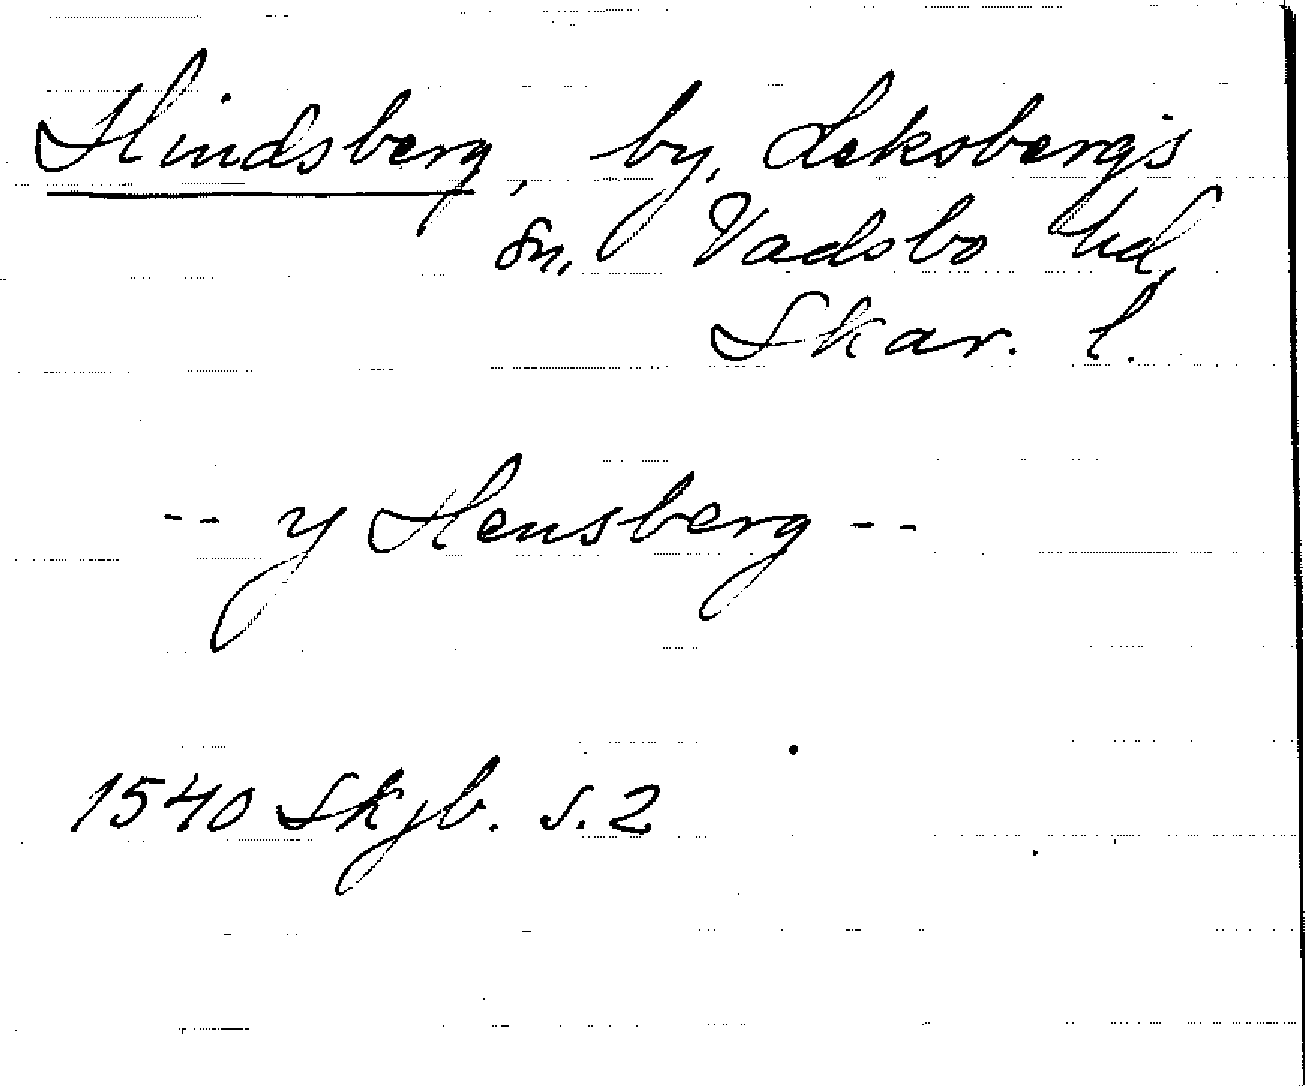 Hindsberg, by, Leksbergs
sn, Vadsbo hd,
Skar. l.
-- y Hensberg --
1540 Skjb. s. 2